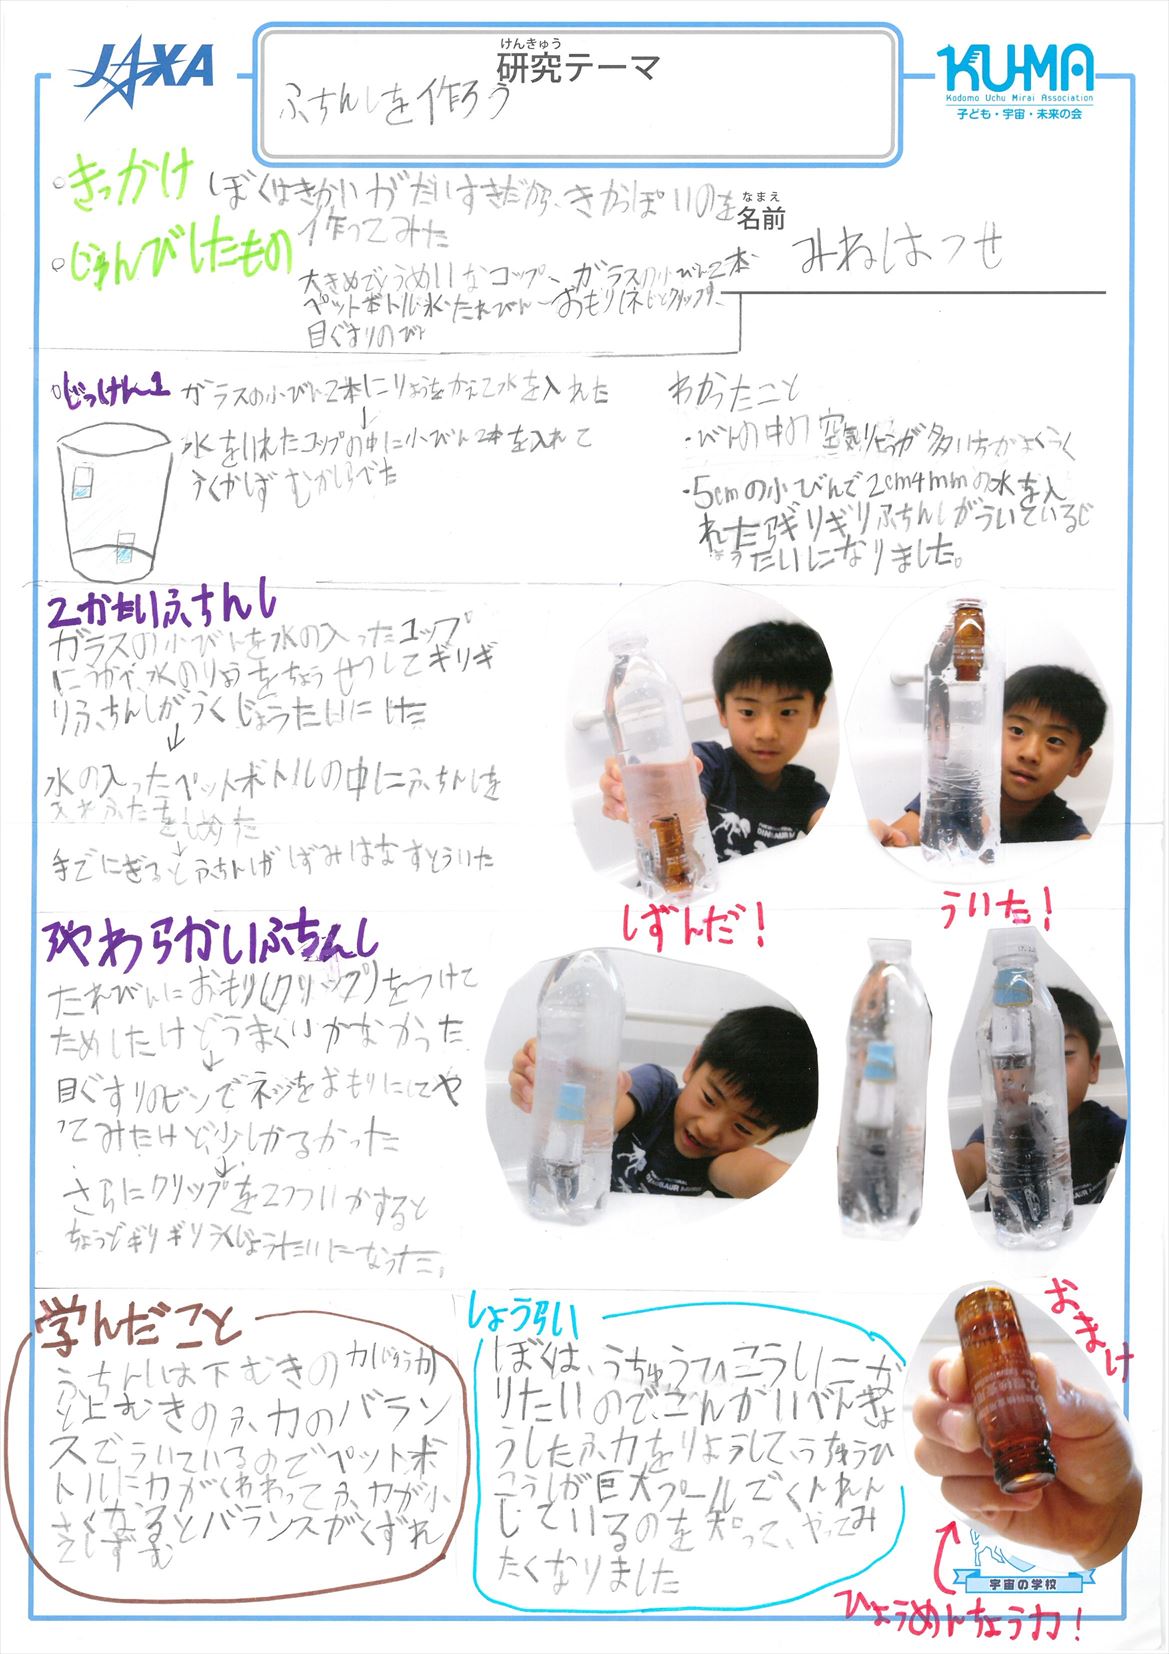 JAXA
けんきゅう
研究テーマ
ふちんしを作ろう
KU-MA
Kodomo Uchu Mirai Association
子ども・宇宙・未来の会
きっかけ
ぼくはきかいがだいすきだから、きかいっぽいのを
作ってみた
なまえ
名前
みねはっせ
じゅんびしたもの
大きめでとうめいなコップ、ガラスの小びん2本
ペットボトル、水、たれびん、おもり(ネジとクリップ)、
目ぐすりのびん
じっけん1
ガラスの小びん2本にりょうをかえて水を入れた
↓
水をいれたコップの中に小びん2本を入れて
うくかしずむかしらべた
わかったこと
・びんの中の空気りょうが多い方がよくうく
・5cmの小びんで2cm4mmの水を入
れたらギリギリふちんしがういているじ
ょうたいになりました。
2かたいふちんし
ガラスの小びんを水の入ったコップ
にうかべ、水のりょうをちょうせつしてギリギ
リふちんしがうくじょうたいにした
↓
水の入ったペットボトルの中にふちんしを
入れふたをしめた
↓
手でにぎるとふちんしがしずみはなすとういた
しずんだ!
ういた!
やわらかいふちんし
たれびんにおもり(クリップ)をつけて
ためしたけどうまくいかなかった
↓
目ぐすりのビンでネジをおもりにしてや
ってみたけど少しかるかった
↓
さらにクリップを2つついかすると
ちょうどギリギリうくじょうたいになった。
学んだこと
ふちんしは下むきの力(じゅう力)
と上むきのふ力のバラン
スでういているのでペットボ
トルに力がくわわってふ力が小
さくなるとバランスがくずれ
てしずむ
しょうらい
ぼくは、うちゅうひこうしになり
たいのでこんかいべんきょ
うしたふ力をりようして、うちゅうひ
こうしが巨大プールでくんれん
しているのを知って、やってみ
たくなりました
おまけ
宇宙の学校
ひょうめんちょう力!